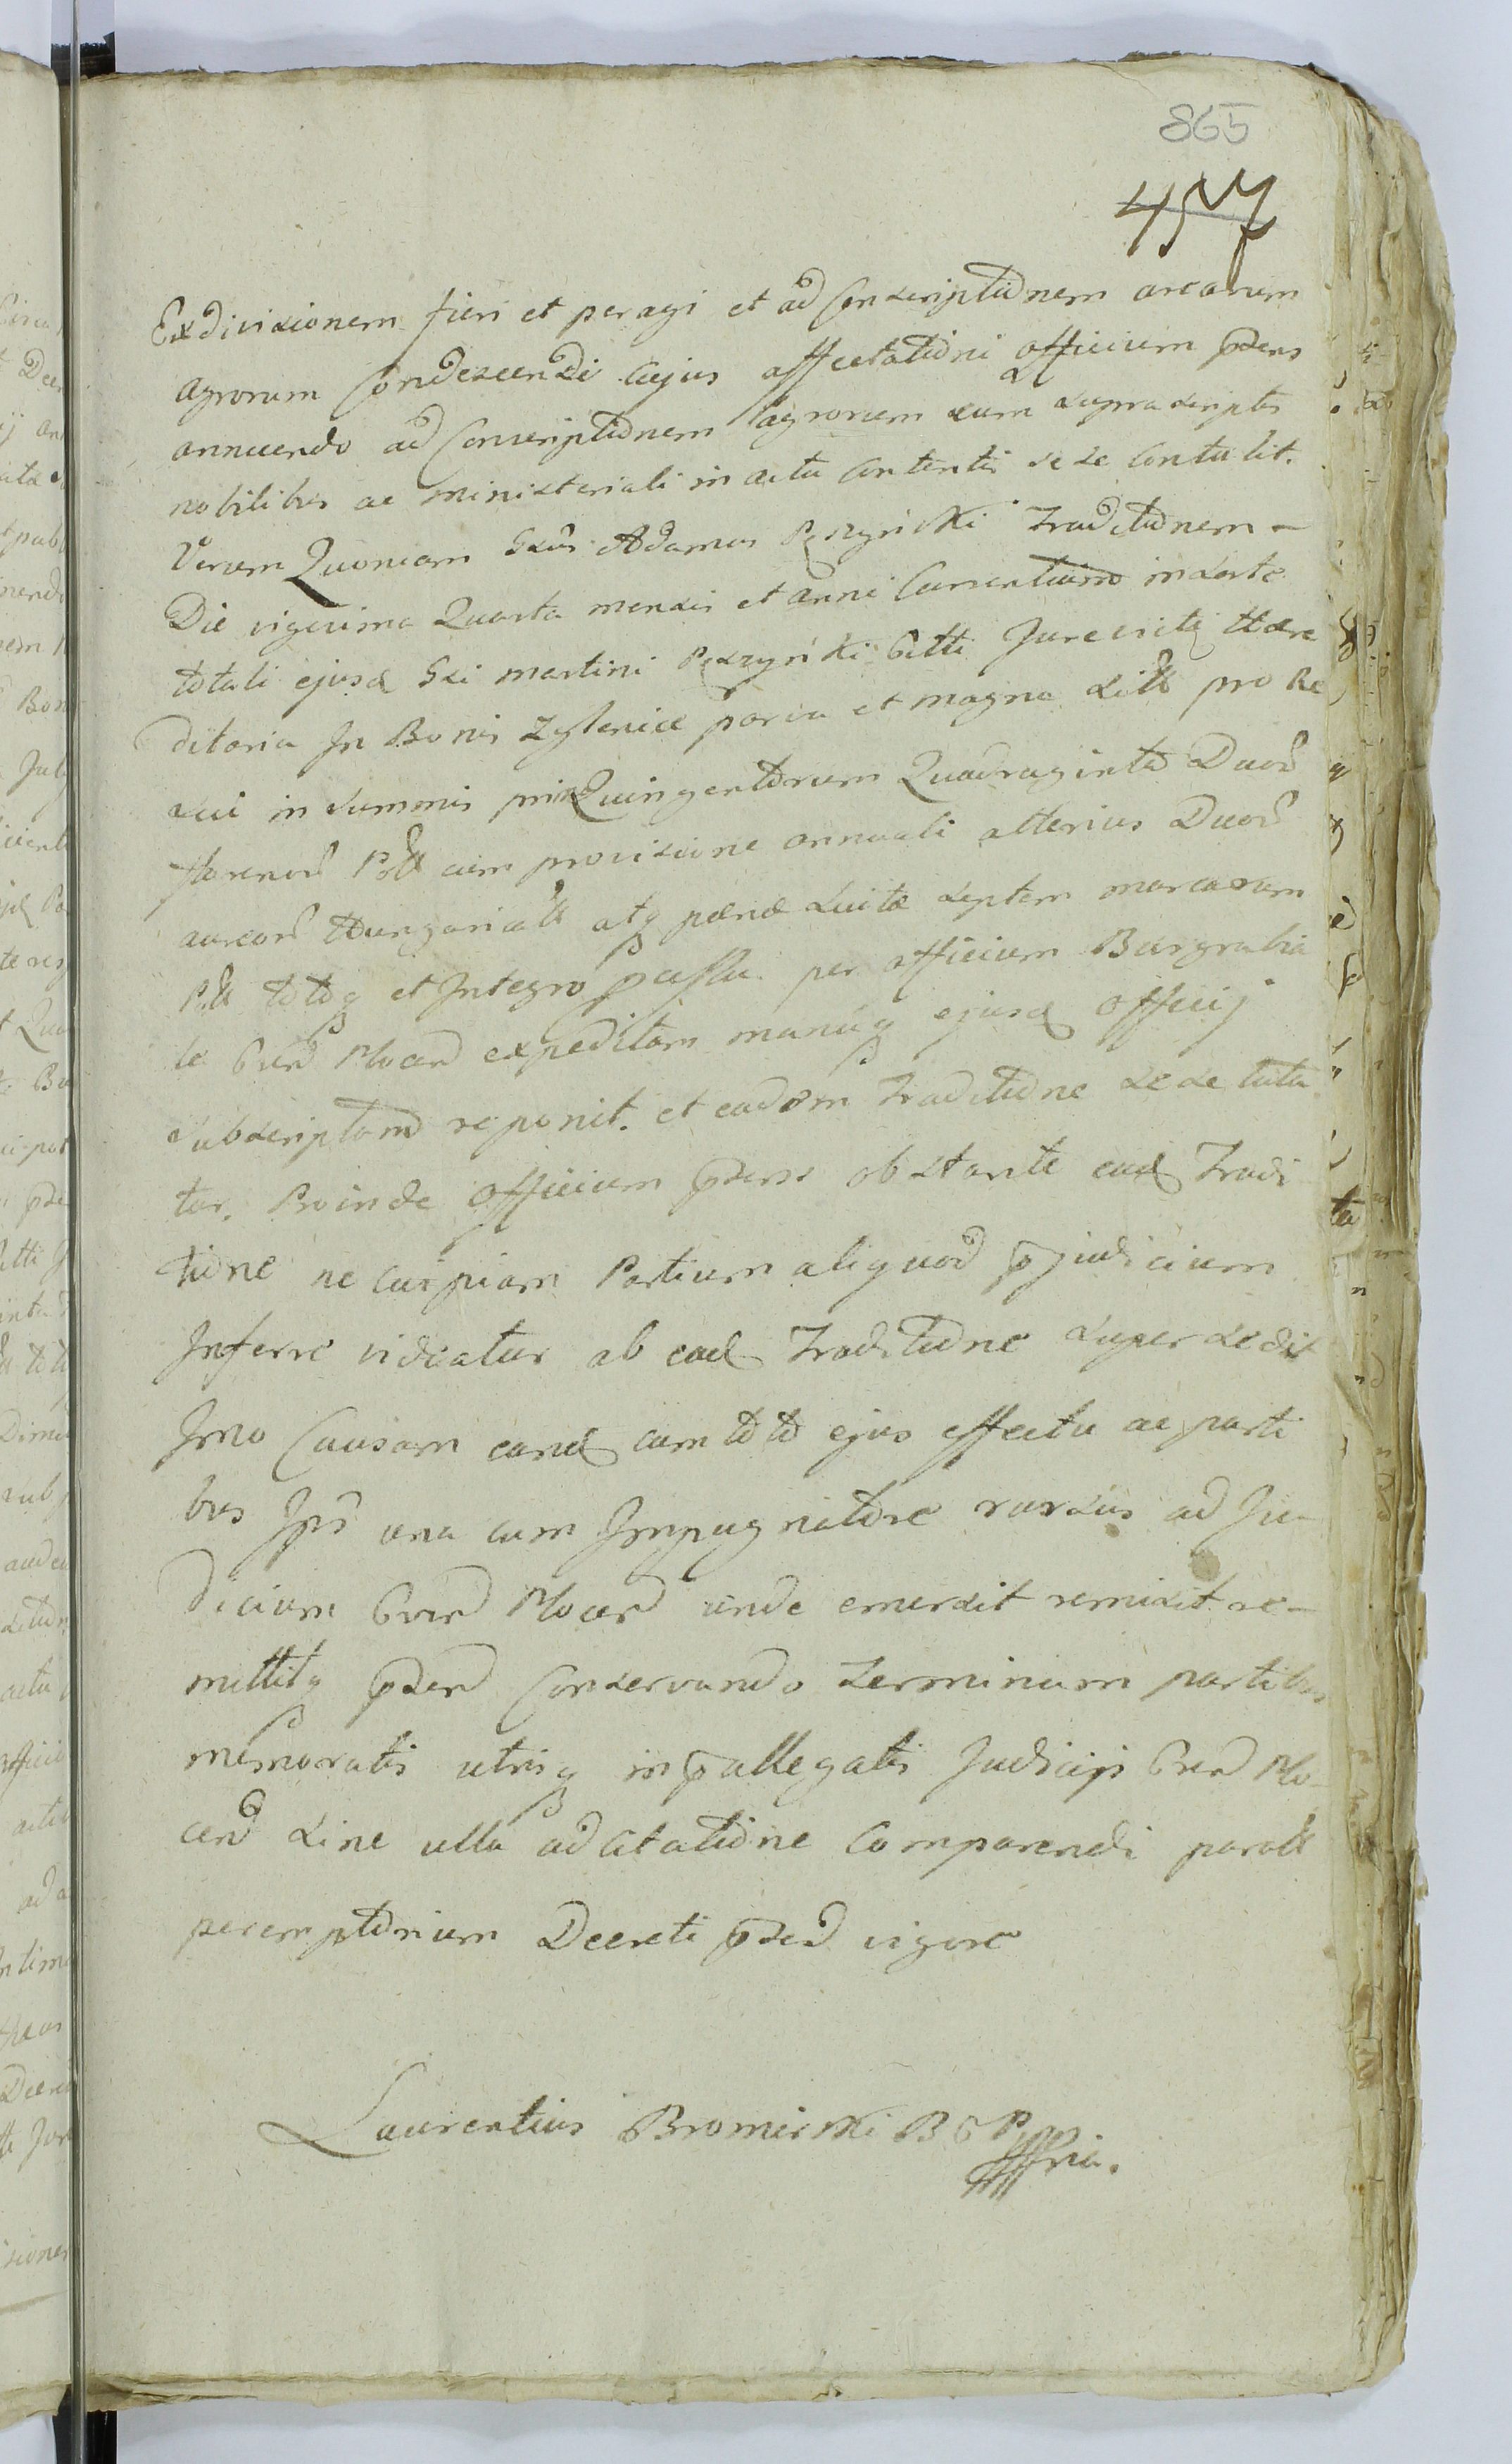 865
457
Exdivisionem fieri et peragi et ad Conscriptionem arearum
agrorum Condescendi Cujus affectationi officium pñs
annuendo ad Conscriptionem agrorum cum suprascriptis
nobilibus ac ministeriali in actu Contentis se se Contulit.
Verum Quoniam Gsus Adamus Pęszyński Traditionem -
Die vigesima Quarta mensis et anni Currentium in Sorte
totali ejusd Gsi martini Pęszyński Citti Jurevicti Hære
ditaria In Bonis Zglenice parva et magna sitt pro Re
sui in summis prin Quingentorum Quadraginta Duor
florenor Poll cum provisione annuali alterius Duor
aureor Hungaricall atq pænæ Luitæ septem marcarum
Poll totoq et Integro passu per officium Burgrabia
le Cren Plocen expeditam manuq ejusd officij
subscriptam reponit. et eadem Traditione se se tuta
tur. Proinde officium pñs obstante ead Tradi
tione ne Cuipiam Partium aliquod pjudicium
Inferre videatur ab ead Traditione supersedit
Imo Causam eand cum toto ejus effectu ac parti
bus Ipis una cum Impugnatore rursus ad Ju-
dicium Cren Plocen unde emersit remisit re-
mittitq psen Conservando Terminum partibus
memoratis utrisq in pallegatis Judicijs Cren Plo-
cen sine ulla adcitatione Comparendi paratt
peremptorium Decreti psen vigore
Laurentius Bromirski B G P
mria.